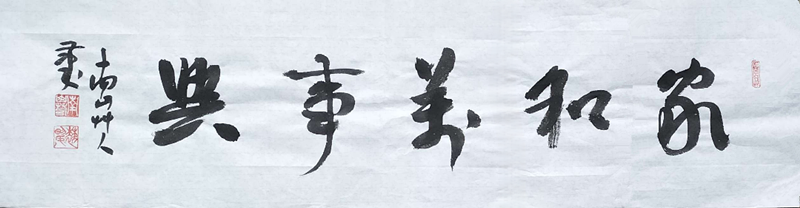 家和萬事興
南山艸人